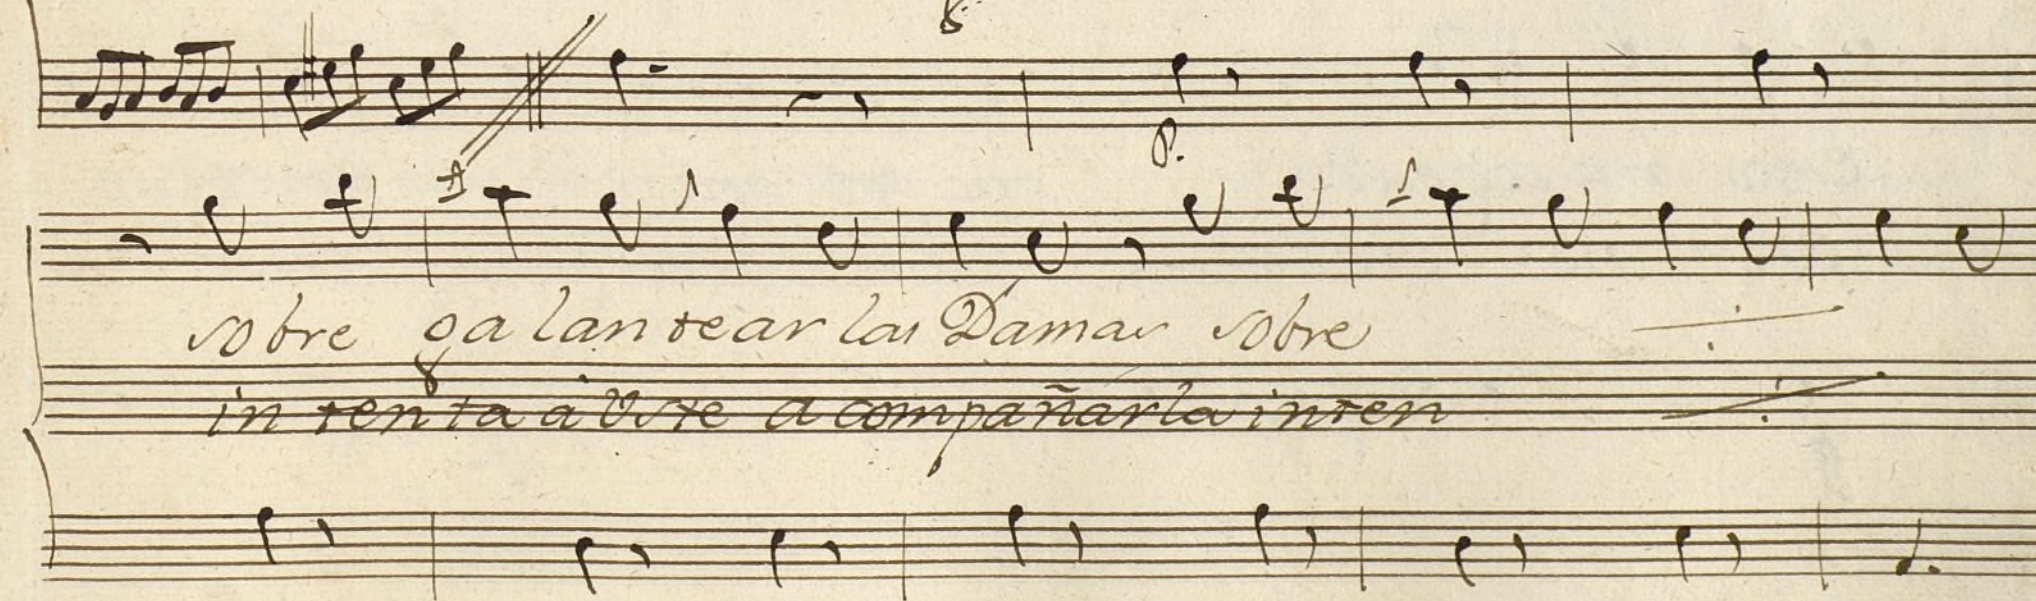 8.
P.
sobre galantear las Damas sobre
intenta a Uste acompañarla inten